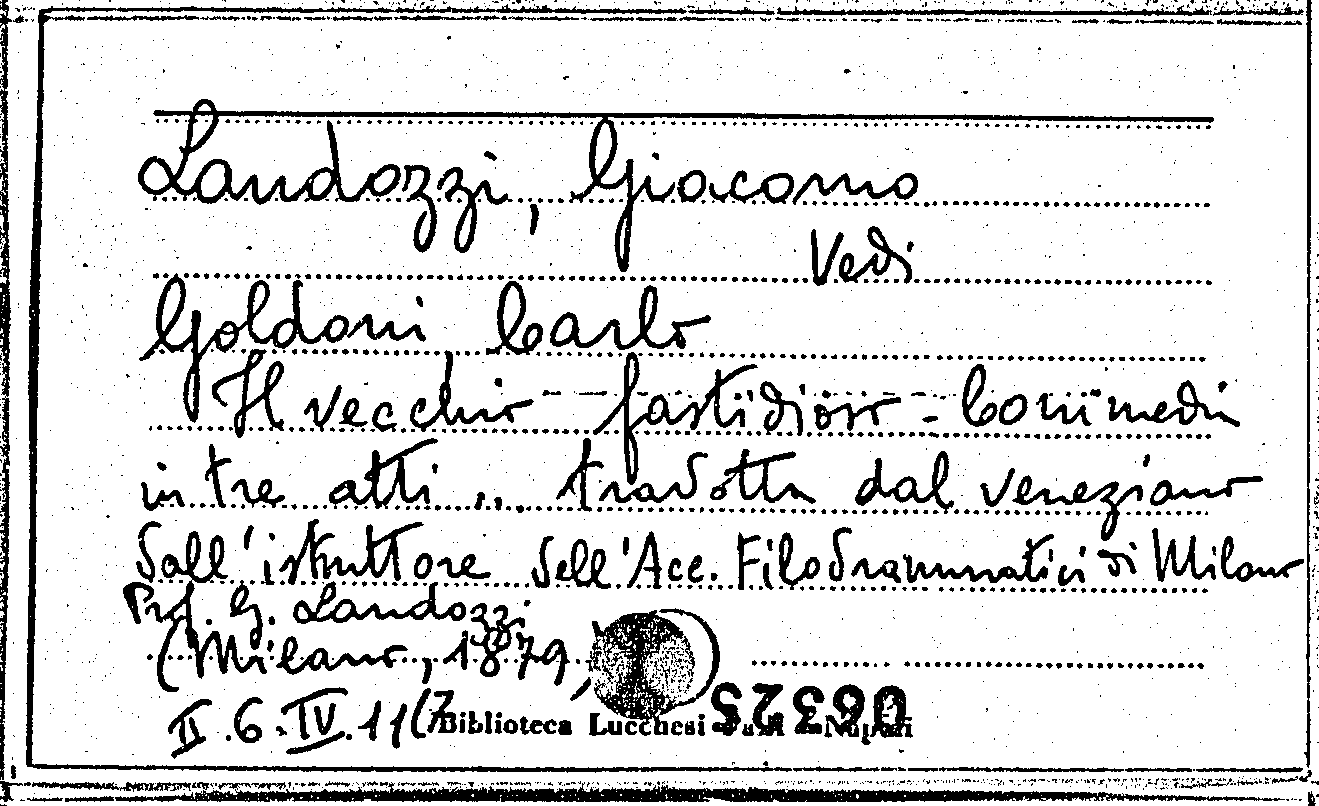 Landozzi, Giacomo
Vedi
Goldoni Carlo
Il vecchio fastidioso - Commedia
in tre atti ... tradotta dal veneziano
dall'istruttore dell'Acc. Filodrammatici di Milano
Prof. G. Landozzi
(Milano, 1879,
II.6.IV.11(7
Biblioteca Lucchesi - Palli - Napoli
06323